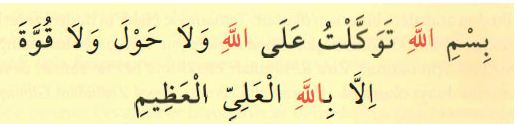 بِسْمِ اللَّهِ تَوَكَّلْتُ عَلَى اللَّهِ وَلَا حَوْلَ وَلَا قُوَّةَ
اِلَّا بِاللَّهِ الْعَلِىِّ الْعَظِيمِ